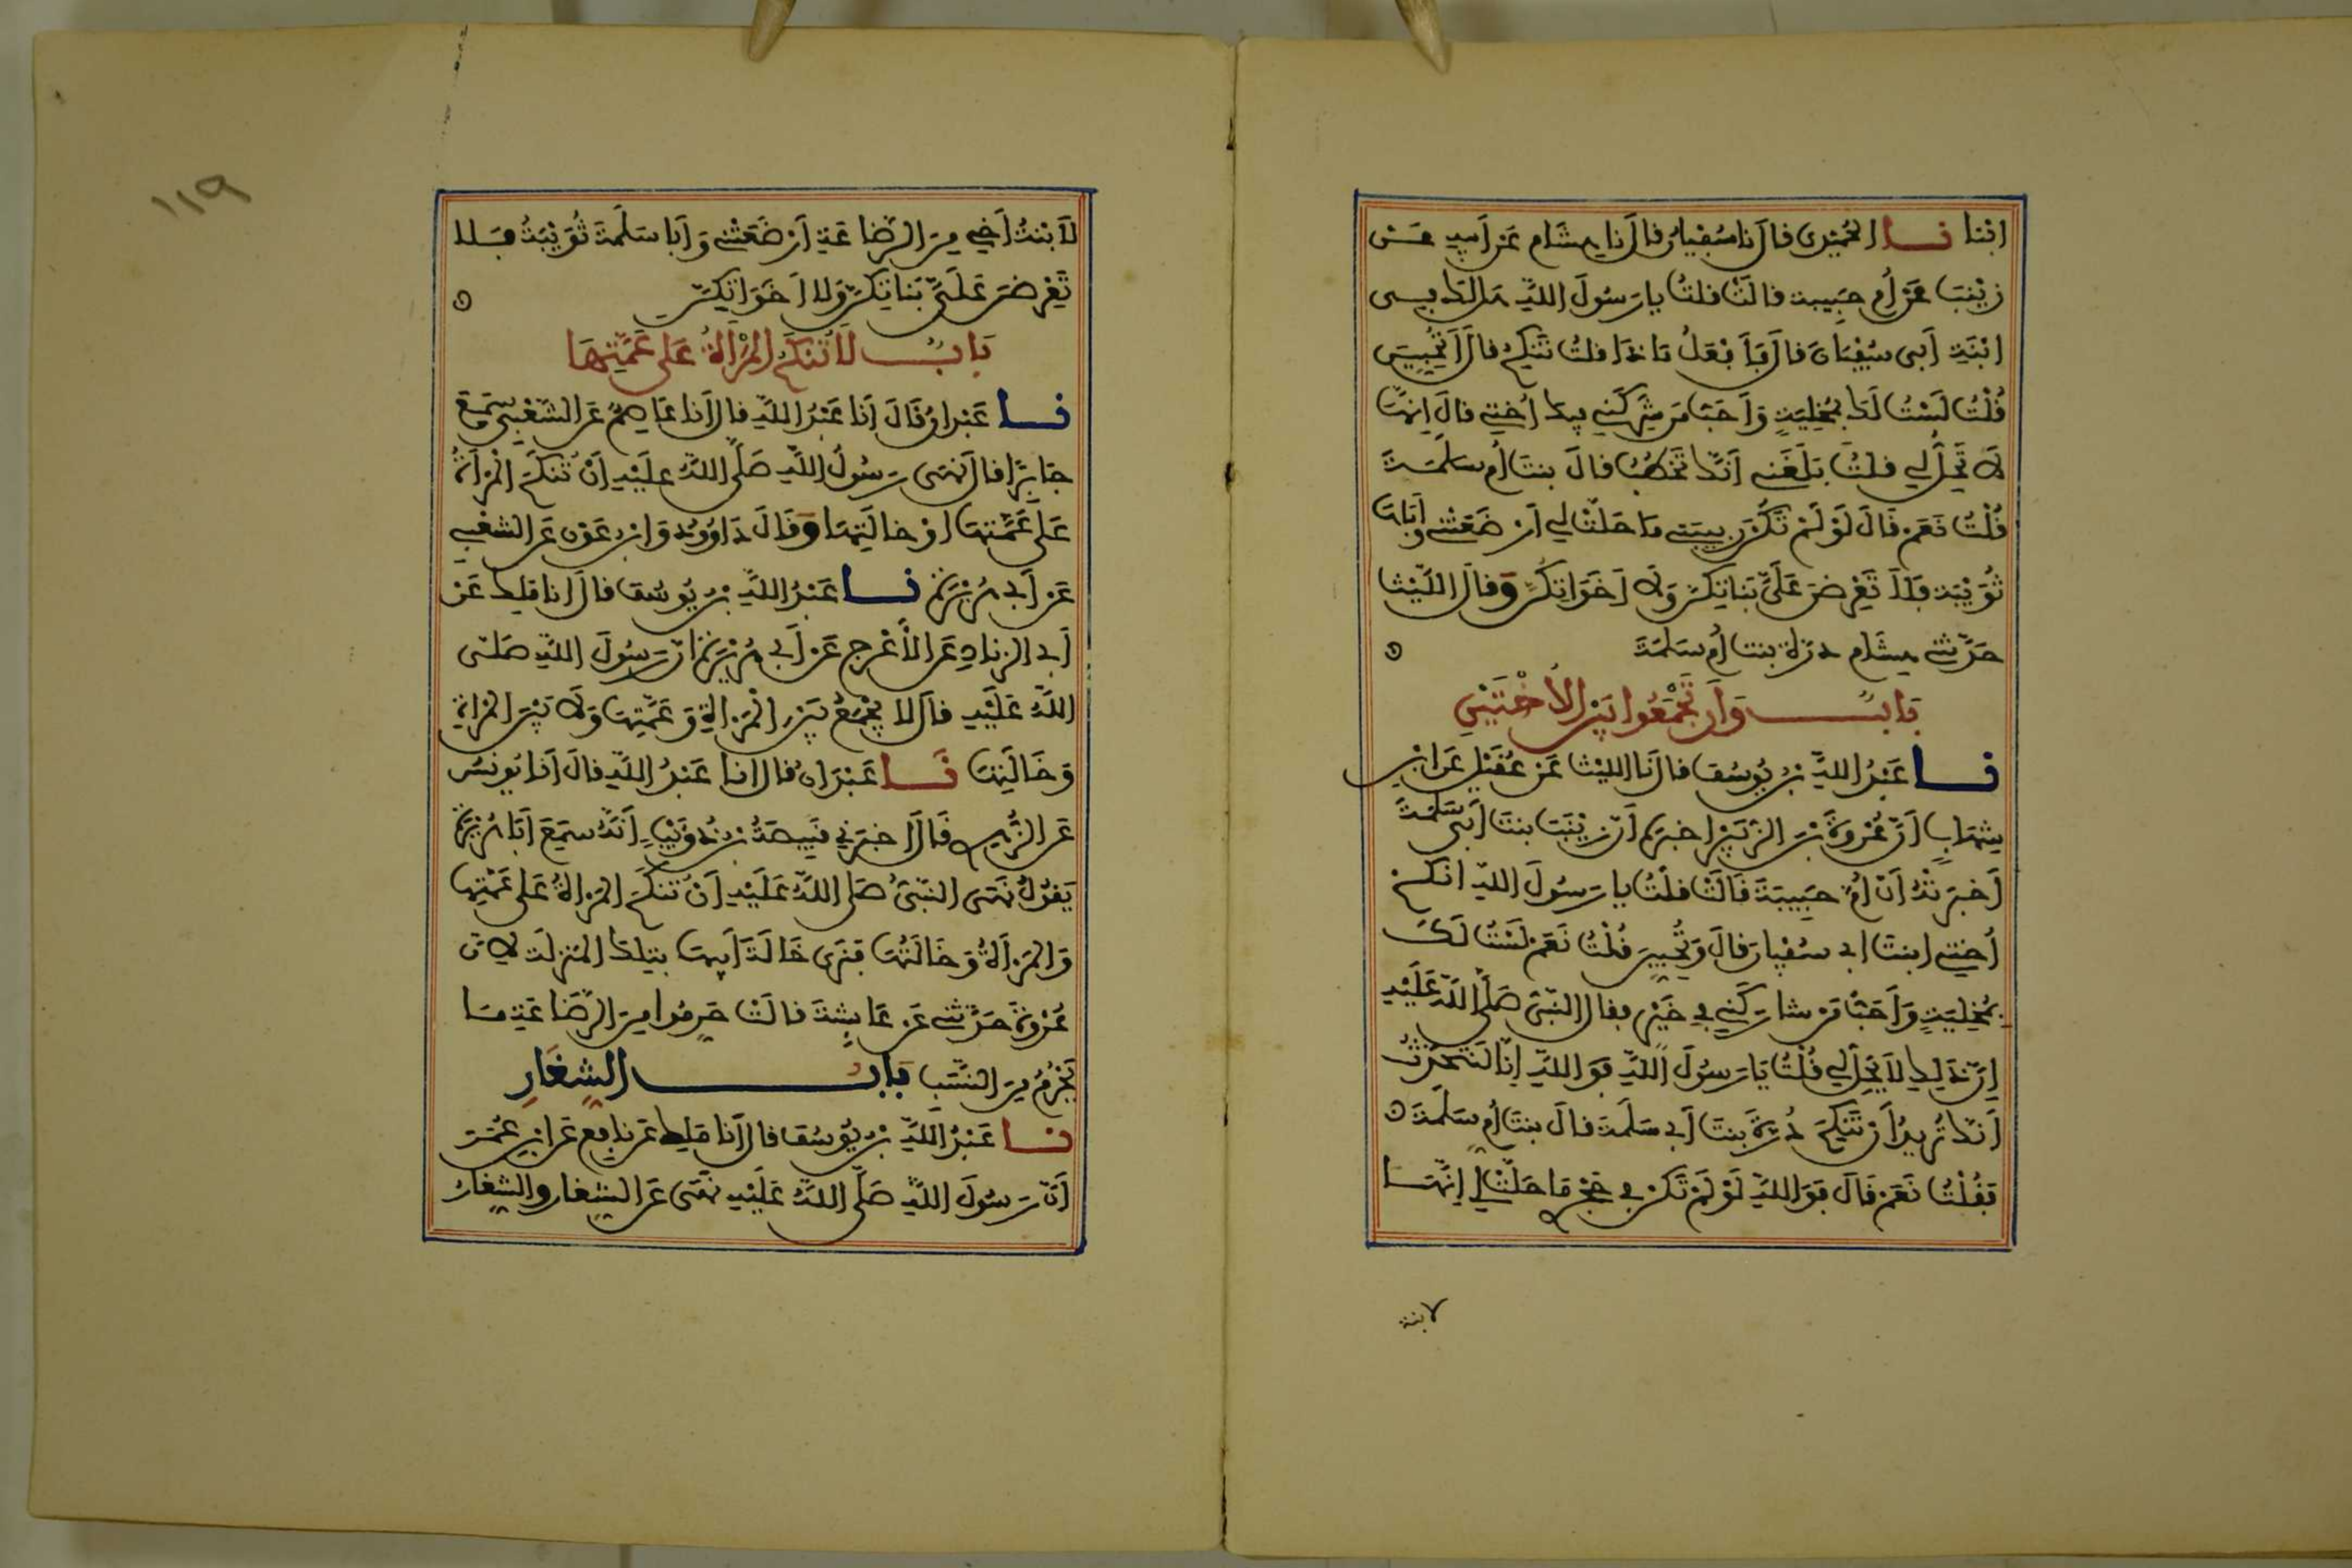 ابنا نا الحميدي قال نا سفيان قال نا هشام عن أبيه عن
زينب عن أم حبيبة قالت قلت يا رسول الله هل لك في
ابنة أبي سفيان قال فأفعل ماذا قلت تنكح قال أتحبين
قلت لست لك بمخلية وأحب من شركني فيك أختي قال إنها
لا تحل لي قلت بلغني أنك تخطب قال بنت أم سلمة
قلت نعم قال لو لم تكن ربيبتي ما حلت لي أرضعتني وأباها
ثويبة فلا تعرضن علي بناتكن ولا أخواتكن وقال الليث
حدثني هشام درة بنت أم سلمة
باب وأن تجمعوا بين الأختين
نا عبد الله بن يوسف قال نا الليث عن عقيل عن ابن
شهاب أن عروة بن الزبير أخبرهم أن زينب بنت أبي سلمة
أخبرته أن أم حبيبة قالت قلت يا رسول الله انكح
أختي ابنت أبي سفيان قال وتحبين قلت نعم لست لك
بمخلية وأحب من شاركني في خير فقال النبي صلى الله عليه
إن ذلك لا يحل لي قلت يا رسول الله فوالله إنا لنتحدث
أنك تريد أن تنكح درة بنت أبي سلمة قال بنت أم سلمة
فقلت نعم قال فوالله لو لم تكن في حجري ما حلت لي إنها
لابنة
١١٩
لابنت أخي من الرضاعة أرضعتني وأبا سلمة ثويبة فلا
تعرضن علي بناتكن ولا أخواتكن
باب لا تنكح المرأة على عمتها
نا عبدان قال أنا عبد الله قال أنا عاصم عن الشعبي سمع
جابرا قال نهى رسول الله صلى الله عليه أن تنكح المرأة
على عمتها أو خالتها وقال داوود وابن عون عن الشعبي
عن أبي هريرة نا عبد الله بن يوسف قال أنا ملك عن
أبي الزناد عن الأعرج عن أبي هريرة أن رسول الله صلى
الله عليه قال لا يجمع بين المرأة وعمتها ولا بين المرأة
وخالتها نا عبدان قال أنا عبد الله قال أنا يونس
عن الزهري قال أخبرني قبيصة بن ذؤيب أنه سمع أبا هريرة
يقول نهى النبي صلى الله عليه أن تنكح المرأة على عمتها
والمرأة وخالتها فنرى خالة أبيها بتلك المنزلة لأن
عروة حدثني عن عائشة قالت حرموا من الرضاعة ما
يحرم من النسب باب الشغار
نا عبد الله بن يوسف قال أنا ملك عن نافع عن ابن عمر
أن رسول الله صلى الله عليه نهى عن الشغار والشغار